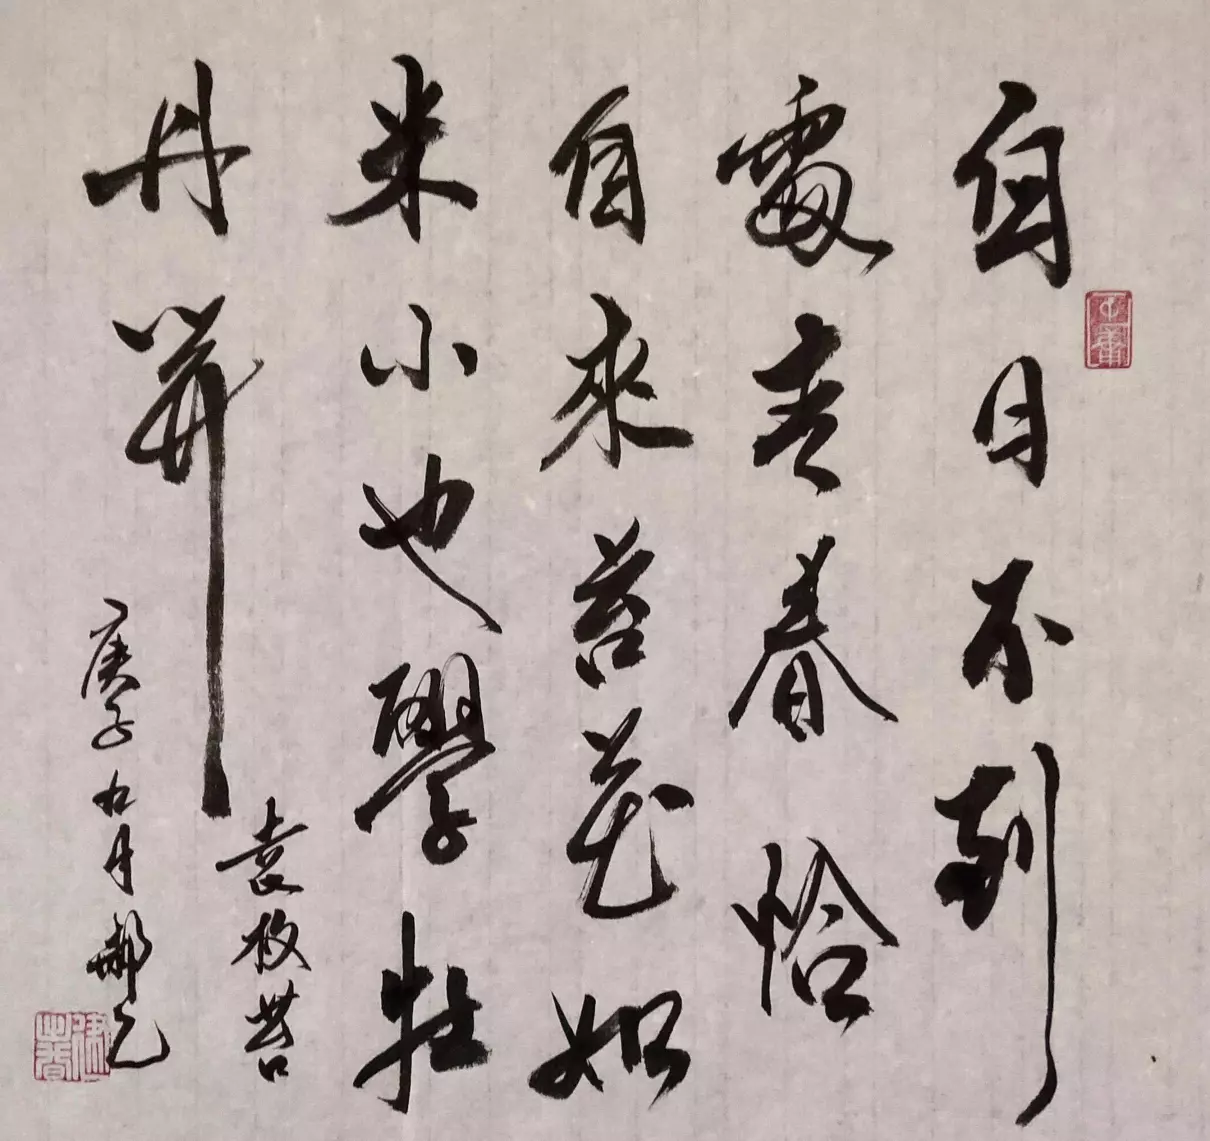 白日不到
處青春恰
自來苔花如
米小也學牡
丹開
袁枚苔
庚子九月郝